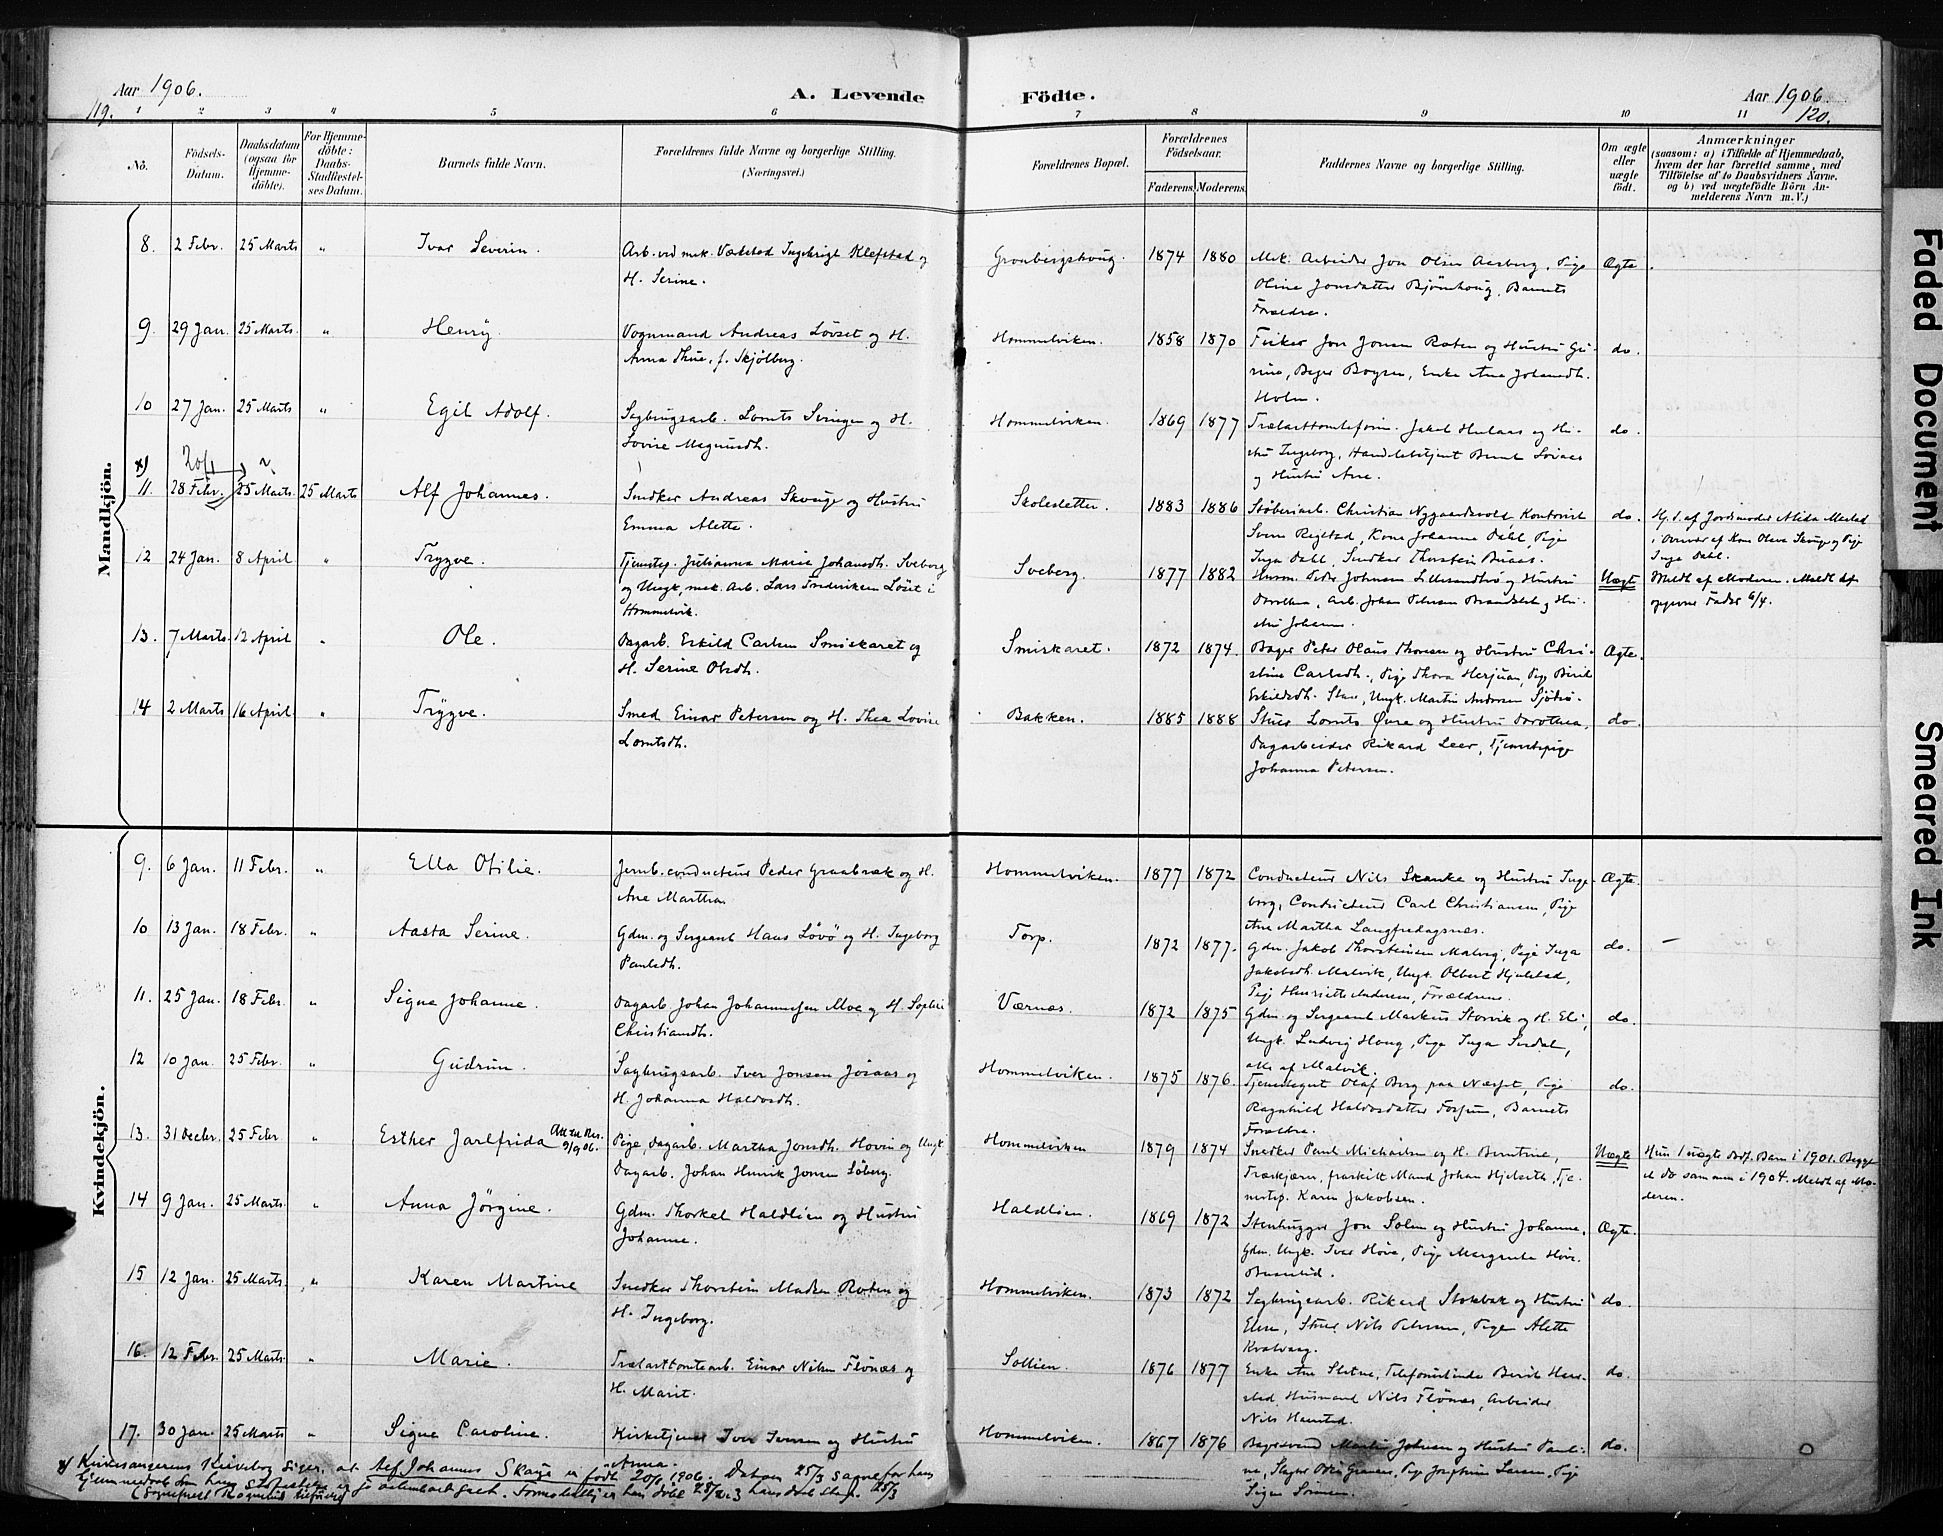 Aar 1906.
119.
A. Levende
Födte.
Aar 1906.
120.
1 2 3 4 5 6 7 8 9 10 11
No.
Födsels-
Datum.
Daabsdatum
(ogsaa for
Hjemme-
döbte).
For Hjemme-
döbte:
Daabs-
Stadfæstel-
ses Datum.
Barnets fulde Navn.
Forældrenes fulde Navne og borgerlige Stilling.
(Næringsvei.)
Forældrenes Bopæl.
Forældrenes
Födselsaar.
Faderens. Moderens.
Faddernes Navne og borgerlige Stilling.
Om ægte
eller
uægte
födt.
Anmærkninger
(saasom: a) i Tilfælde af Hjemmedaab,
hvem der har forrettet samme, med
Tilföielse af to Daabsvidners Navne.
og b) ved uægtefödte Börn An-
melderens Navn m. V.)
Mandkjön.
8. 2 Febr. 25 Marts " Ivar Severin. Arb. ved mek. Værksted Ingebrigt Klefstad og
H. Serine.
Gronbergshoug. 1874 1880 Mek. Arbeider Jon Olsen Aasberg, Pige
Oline Jonsdatter Bjönhoug, Barnets
Forældre.
Ægte.
9. 29 Jan. 25 Marts. " Henry Vognmand Andreas Lövset og H.
Anna Thue, f. Skjölberg.
Hommelviken. 1858 1870 Fisker Jon Jonsen Roten og Hustru Gu-
rine, Bager Boysen, Enke Ane Johansdh.
Holm.
do.
10 27 Jan. 25 Marts " Egil Adolf. Sagbrugsarb. Lornts Svingen og H.
Lovise Magnusdh.
Hommelviken. 1869 1877 Trælasttomteform. Jakob Hulaas og Hu-
stru Ingeborg, Handelsbetjent Bernt Löiaas
og Hustru Ane.
do.
x) 20/1
11. 28 Febr. 25 Marts. 25 Marts Alf Johannes. Snedker Andreas Skouge og Hustru
Emma Alette.
Skolesletten. 1883 1886 Støberiarb. Christian Nygaardsvold, Kontorist
Svein Rigstad, Kone Johanna Dahl, Pige
Inga Dahl, Snedker Thorstein Buaas.
do. Hj. d. af Jordmoder Alida Mestad
i Overvær af Kone Olava Skouge og Pige
Inga Dahl.
12 24 Jan. 8 April " Trygve. Tjenstep. Julianna Marie Johansdh. Sveberg
og Ungk. mek. Arb. Lars Frederiksen Löset i
Hommelvik.
Sveberg. 1877 1882 Husm. Peder Johnsen Lillesandhö og Hustru
Dorothea, Arb. Johan Petersen Brandslet og Hu-
stru Johanna.
Uægte Meldt af Moderen. Meldt af
opgivne Fader 6/4.
13. 7 Marts. 12 April " Ole. Dagarb. Eskild Carlsen Smiskaret og
H. Serine Olsdh.
Smiskaret. 1872 1874. Bager Peter Olaus Thorsen og Hustru Chri-
stine Carlsdh., Pige Thora Herjuan, Pige Birit
Eskildsdh. Stav, Ungk. Martin Andersen Sjödö.
Ægte.
14 2 Marts 16 April " Trygve. Smed Einar Petersen og H. Thea Lovise
Lorntsdh.
Bakken. 1885 1888 Stuer Lornts Øvre og Hustru Dorothea,
Dagarbeider Rikard Leer, Tjenestepige
Johanna Petersen.
do.
Kvindekjön.
9. 6 Jan. 11 Febr. " Ella Otilie. Jernb.conducteur Peder Graabræk og H.
Ane Martha.
Hommelviken. 1877 1872 Conducteur Nils Skanke og Hustru Inge-
borg, Conducteur Carl Christiansen, Pige
Ane Martha Langfredagsnes.
Ægte.
10 13 Jan. 18 Febr. " Aasta Serine. Gdm. og Sergeant Hans Lövö og H. Ingeborg
Paulsdh.
Torp. 1872 1877. Gdm. Jakob Thorsteinsen Malvig, Pige Inga
Jakobsdh. Malvik, Ungk. Olbert Hjelstad,
Pige Henriette Andersen, Forældrene.
do.
11. 25 Jan. 18 Febr. " Signe Johanne. Dagarb. Johan Johannesen Moe og H. Sophie
Christiansdh.
Værnes. 1872 1875 Gdm. og Sergeant Markus Storvik og H. Eli,
Ungk. Ludvig Haug, Pige Inga Surdal,
alle af Malvik.
do.
12 10 Jan. 25 Febr. " Gudrun. Sagbrugsarb. Iver Jonsen Jösaas og
H. Johanna Haldosdh.
Hommelviken. 1875 1876. Tjenstegut Olaf Berg paa Næsset, Pige
Ragnhild Haldosdatter Forsun, Barnets
Forældre.
do.
13. 31 Decbr. 25 Febr " Esther Jarlfrida Att. til
3/9 06. Pige, Dagarb. Martha Jonsdh. Hovin og Ungk.
Dagarb. Johan Henrik Jonsen Söberg.
Hommelviken 1879 1874 Snedker Paul Michaelsen og H. Berntine,
Træskjærer, fraskilt Mand Johan Hjelseth, Tje-
nestep. Karen Jakobsen.
Uægte Hun 1 uægte Barn i 1901. Begge
et do sammen i 1904. Meldt af Mo-
deren.
14 9 Jan. 25 Marts. " Anna Jörgine. Gdm. Thorkel Haldlien og Hustru
Johanne.
Haldlien. 1869 1872 Stenhugger Jon Solem og Hustru Johanne,
Gdm. Ungk. Iver Höve, Pige Margrete Höve
Ægte.
15 12 Jan. 25 Marts. " Karen Martine Snedker Thorstein Madsen Roten og
H. Ingeborg.
Hommelviken. 1873 1872 Sagbrugsarb. Rikard Stokbak og Hustru
Elen, Stuer Nils Petersen, Pige Alette
Kvalvaag.
do.
16. 12 Febr. 25 Marts. " Marie. Trælasttomtearb. Einar Nilsen Flönæs og
H. Marit.
Sollien. 1876 1877 Enke Ane Sletne, Telefonistinde Berit Ham-
stad, Husmand Nils Flönæs, Arbeider
Nils Hamstad.
do.
17. 30 Jan. 25 Marts " Signe Caroline. Kirketjener Iver Iversen og Hustru
Anna.
Hommelviken. 1867 1876 Bagersvend Martin Johnsen og Hustru Pauli-
ne, Slagter Odin Granaas, Pige Josefine Larsen, Pige
Signe Simonsen.
do.
x) Kirkesangerens Kirkebog siger, at Alef Johannes Skauge er født 20/1 1906. Datoen 25/3 sagne for hans
Hjemmedaab som hans
hans daab 25/3